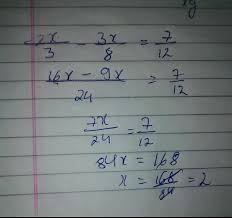 2x/3 - 3x/8 = 7/12
16x - 9x/24 = 7/12
7x/24 = 7/12
84x = 168
x = 168/84 = 2